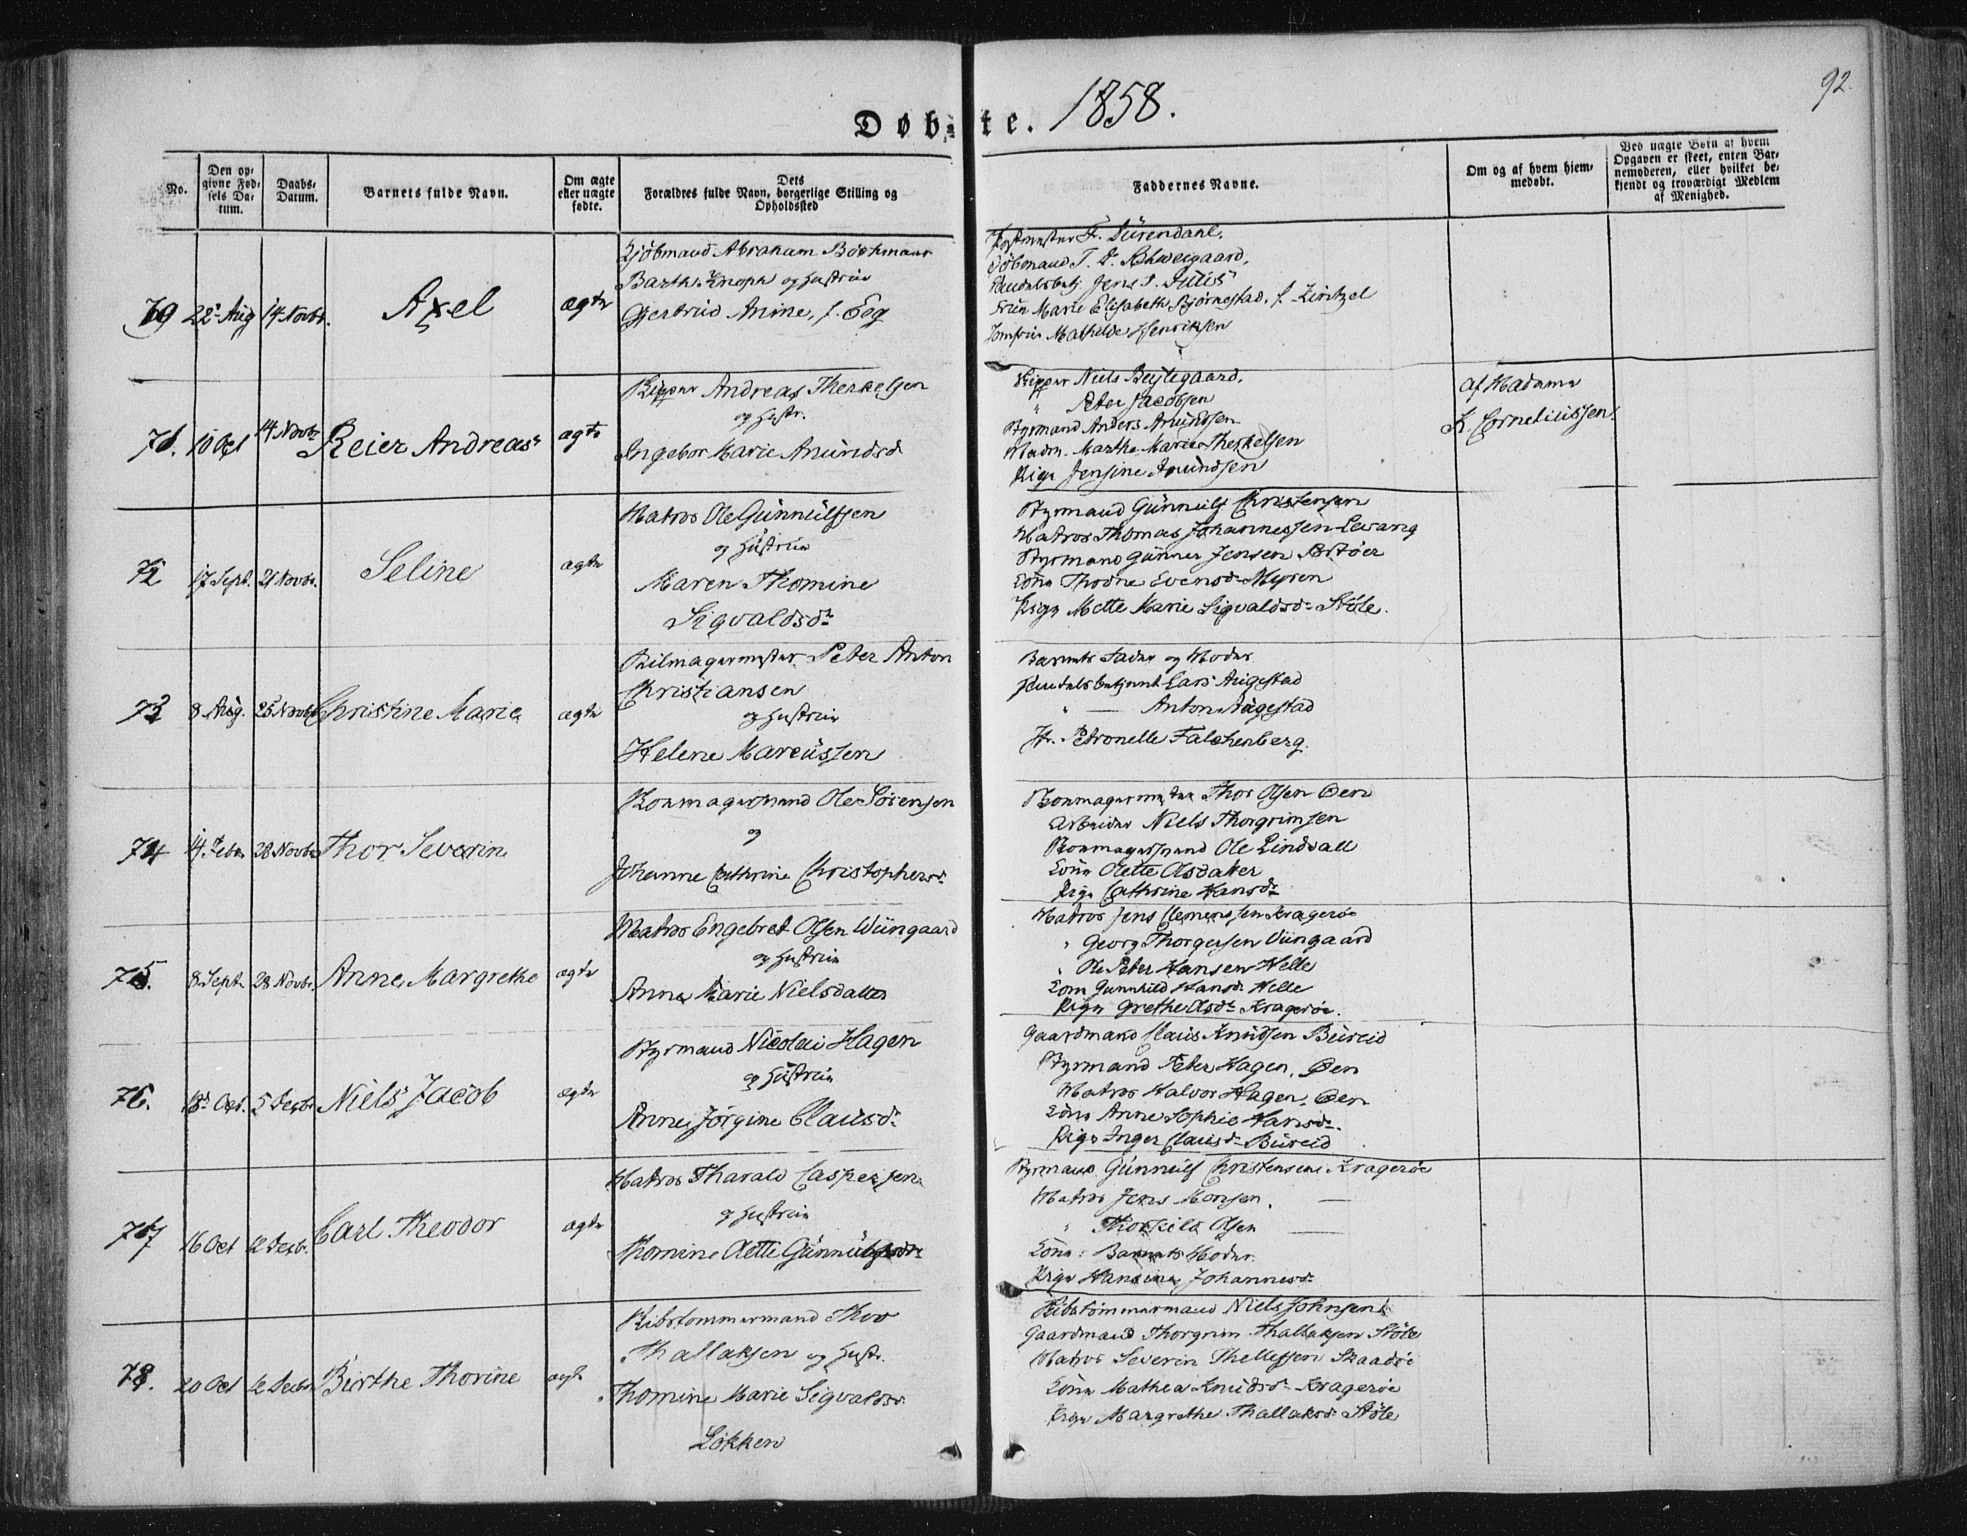 92.
Døbte. 1858.
No.
Den opgivne Fødsels Datum.
Daabs-Datum.
Barnets fulde Navn.
Om ægte eller uægte fødte.
Dets Forældres fulde Navn, borgerlige Stilling og Opholdssted
Faddernes Navne.
Om og af hvem hjemmedøbt.
Ved uægte Børn af hvem Opgaven er skeet, enten Barnemoderen, eller hvilket bekjendt og troværdigt Medlem af Menighed.
70 22 Aug 14 Novbr. Axel ægte
Kjøbmand Abraham Boehmann
Barth Knoph og Hustrue
Gjertrud Anine, f. Eeg
Postmester F. Dürendahl.
Kjøbmand T. D. Schweigaard,
Handelsbetj. Jens P.
Frue Marie Elisabeth Bjørnestad, f. Zintzel
Jomfrue Mathilde Henriksen
71. 10 Oct 14 Novbr Reier Andreas ægte
Skipper Andreas Therkelsen
og Hustr.
Ingebor Marie Amundsd
Skipper Niels Bejlegaard.
" Peter Jacobsen
Styrmand Anders Amundsen
Madm. Marthe Marie Therkelsen
Pige Jensine Amundsen
af Madame
K. Corneliussen.
72 17 Sept. 21 Novbr. Seline ægte
Matros Ole Gunnulfsen
og Hustrue
Maren Thomine
Sigvaldsdr
Styrmand Gunnulf Christensen
Matros Thomas Johannessen Levang
Styrmand Gunner Jensen Portøer
Kone Thodne Evensdr Myren
Pige Mette Marie Sigvaldsdr Støle.
73 8 Aug. 25 Novbr Christine Marie ægte
Seilmagermester Peter Anton
Christiansen
og Hustrue
Helene Marcussen
Barnets Fader og Moder
Handelsbetjent Lars Augestad
" — Anton Augestad
Fr. Petronelle Falchenberg.
74 14 Febr 28 Novbr Thor Severin
Skomagersvend Ole Sørensen
og
Johanne Cathrine Christophersdr
Skomagermester Thor Olsen Øen
Arbeider Niels Thorgrimsen
Skomagersvend Ole Lindvall
Kone Olette Olsdatter
Pige Cathrine Hansdr
75. 8 Sept. 28 Novbr. Anne Margrethe ægte
Matros Engebret Olsen Wiingaard
og Hustrue
Anne Marie Nielsdatter
Matros Jens Clemensen Kragerøe
" Georg Thorgersen Viingaard
" Ole Peter Hansen Helle
Kone Gunnhild Hansdr Helle
Pige Grethe Olsdr Kragerøe.
76. 18 Oct. 5 Decbr Niels Jacob ægte
Styrmand Nicolai Hagen
og Hustrue
Anne Jørgine Clausdr
Gaardmand Claus Knudsen Bureid
Styrmand Peter Hagen, Øen
Matros Halvor Hagen, Øen
Kone Anne Sophie Hansdr.
Pige Inger Clausdr Bureid
77 16 Oct 12 Decbr. Carl Theodor ægte
Matros Tharald Caspersen
og Hustrue
Thomine Olette Gunnulfsdr
Styrmand Gunnulf Christensen Kragerøe
Matros Jens Monsen. —
" Thorkild Olsen —
Kone: Barnets Moder.
Pige Hansine Johannesdr
78. 20 Oct 12 Decbr Birthe Thorine ægte
Skibstømmermand Thor
Thallaksen og Hustr.
Thomine Marie Sigvaldsdr
Løkken
Skibstømmermand Niels Johnsen
Gaardmand Thorgrim Thallaksen Støle
Matros Severin Thellefsen Skaadøe
Kone Mathea Knudsdr Kragerøe
Pige Margrethe Thallaksdr Støle